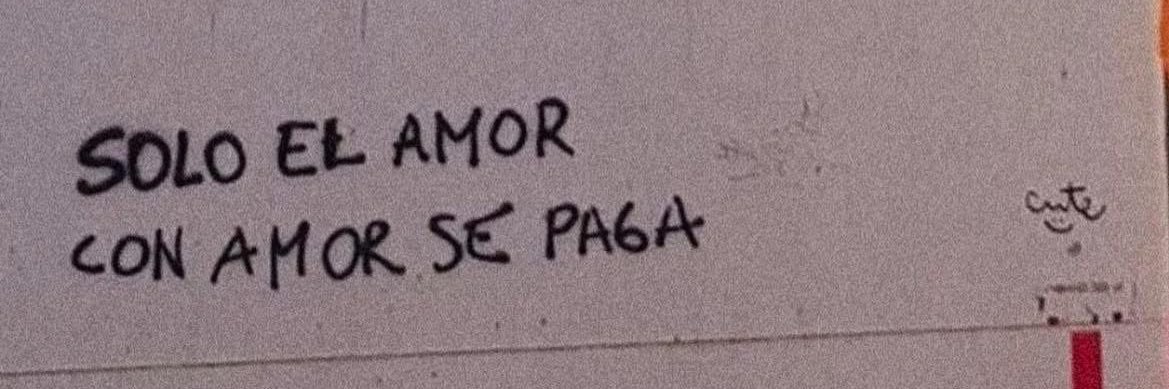 SOLO EL AMOR
CON AMOR SE PAGA
cute